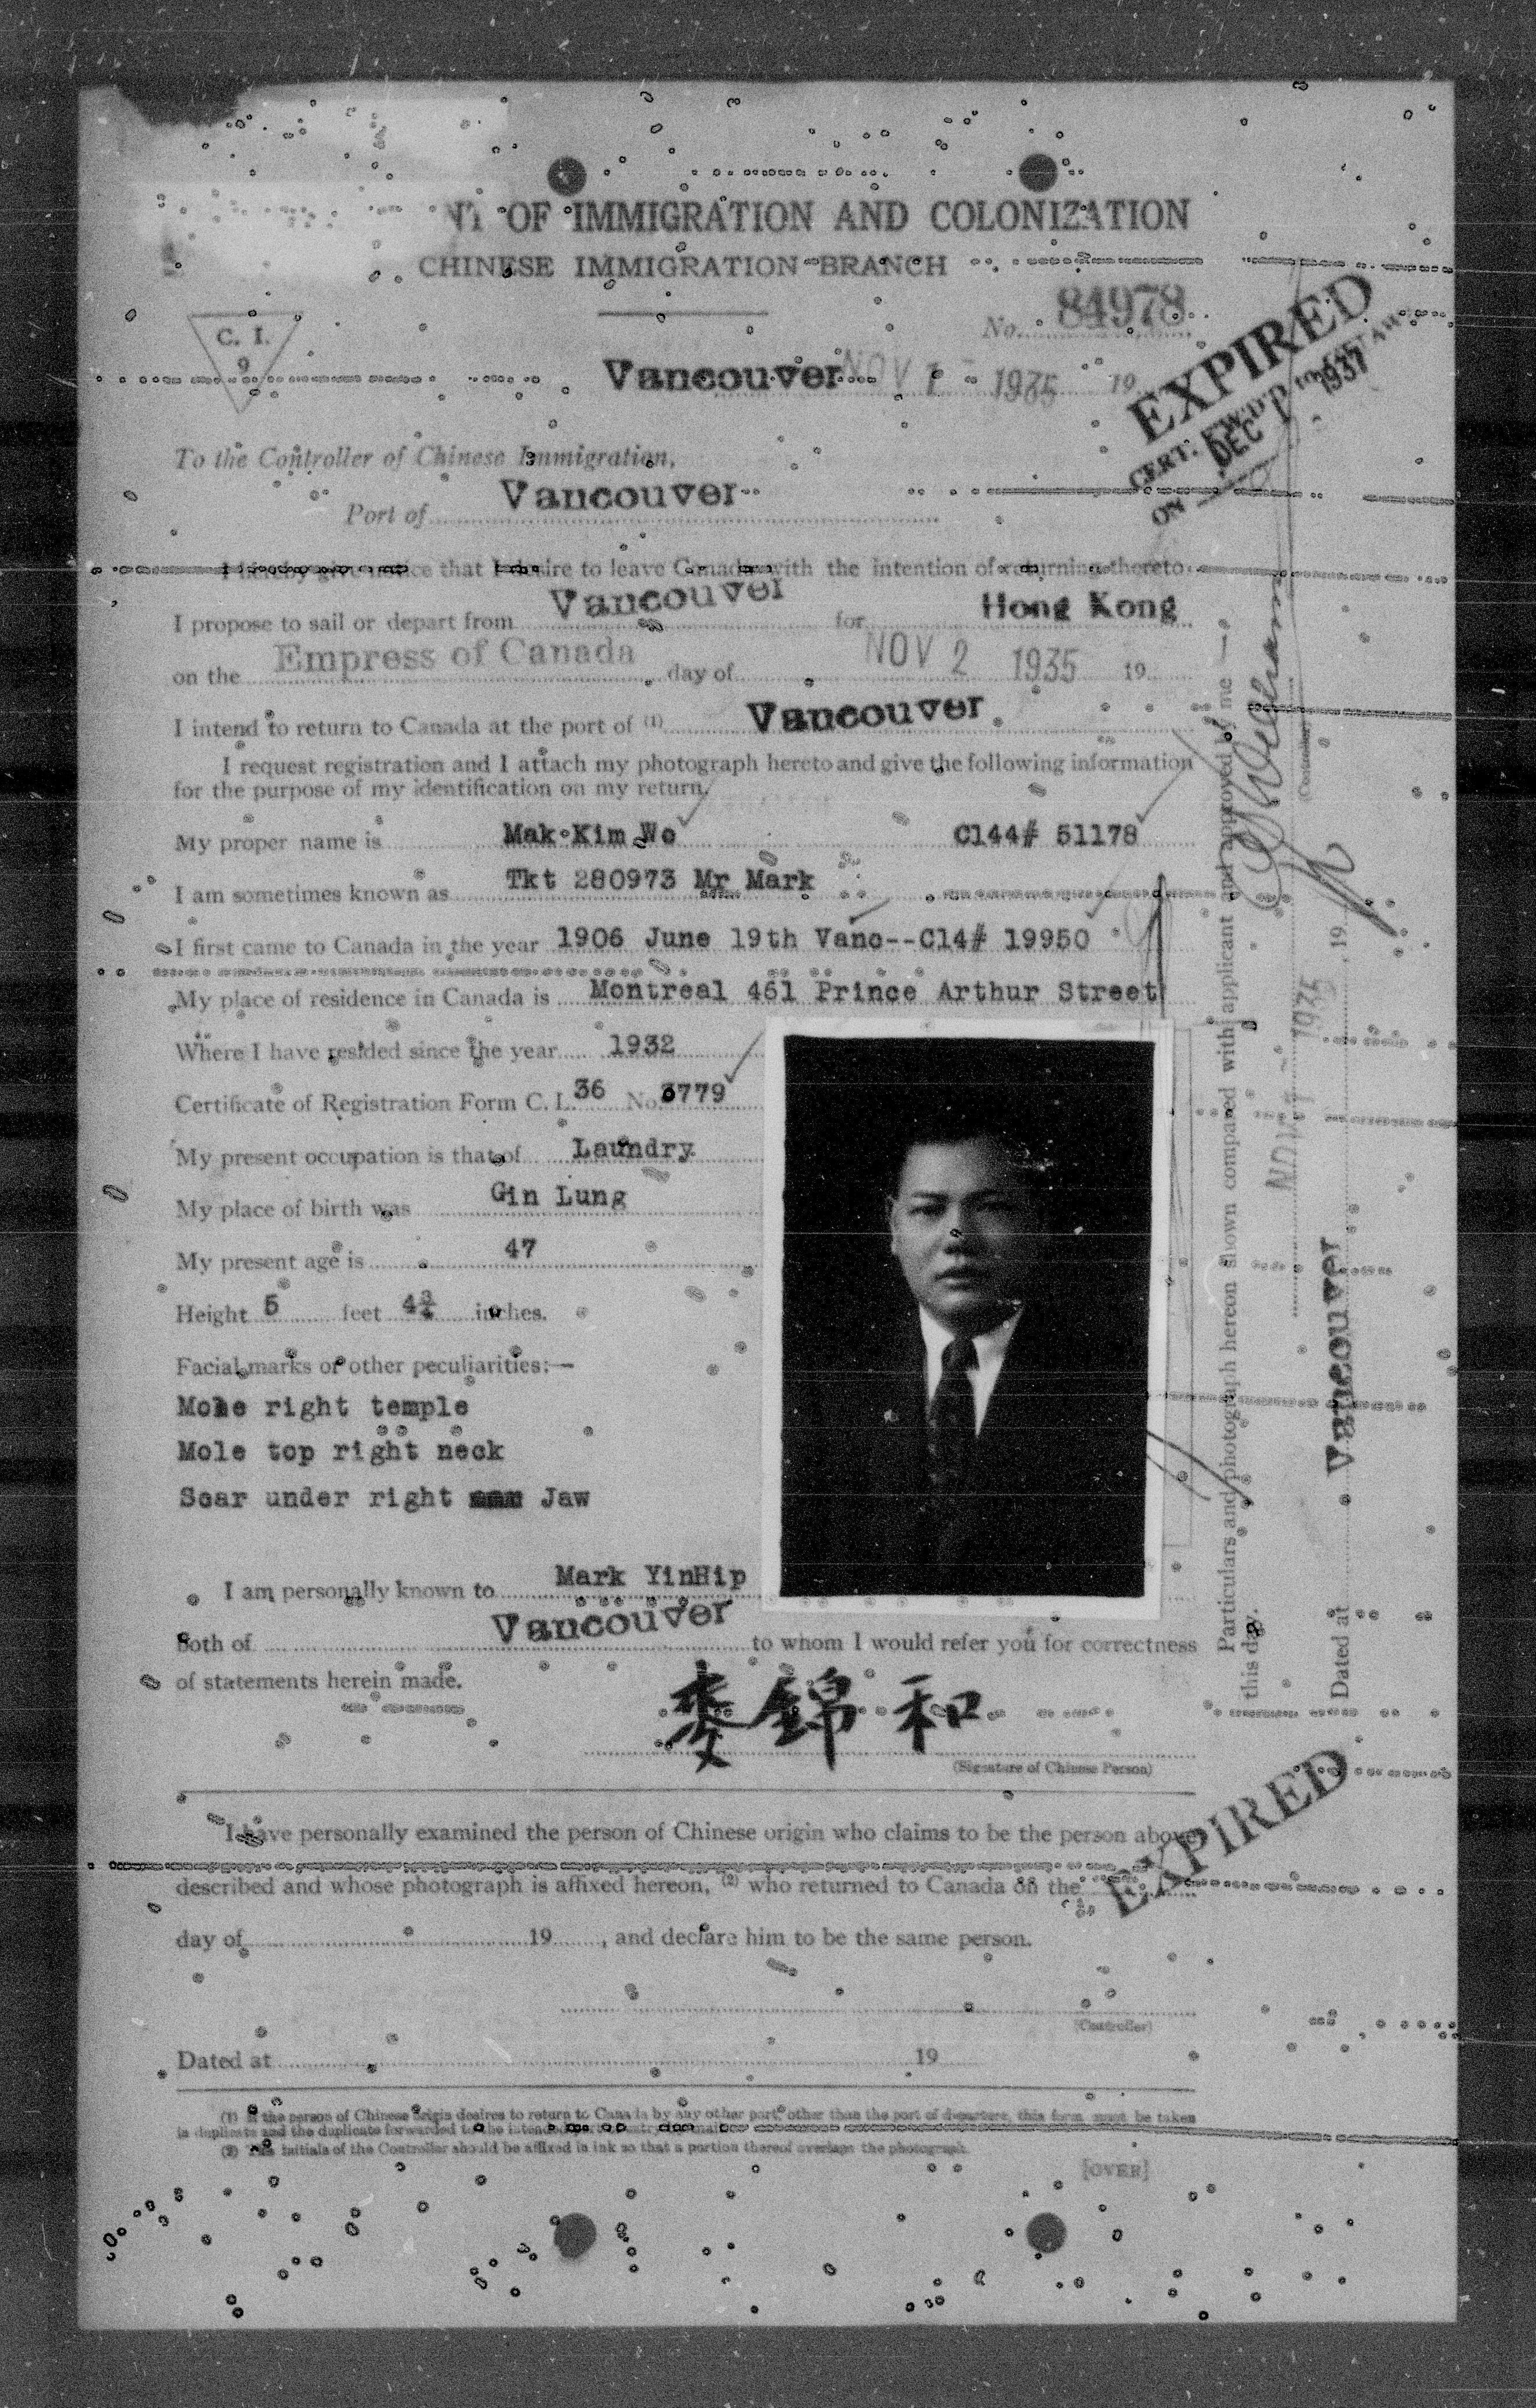 OF IMMIGRATION AND COLONIZATION
CHINESE IMMIGRATION BRANCH
C. I.
9
No. 84978
Vancouver NOV 1 - 1935 19
EXPIRED
CERT. FW'D'D to OTTAWA
ON DEC 1 1937
To the Controller of Chinese Immigration,
Port of Vancouver
I hereby give notice that I desire to leave Canada with the intention of returning thereto.
I propose to sail or depart from Vancouver for Hong Kong
on the Empress of Canada day of NOV 2 1935 19
I intend to return to Canada at the port of (1) Vancouver
I request registration and I attach my photograph hereto and give the following information
for the purpose of my identification on my return.
My proper name is Mak Kim Wo C144# 51178
I am sometimes known as Tkt 280973 Mr Mark
I first came to Canada in the year 1906 June 19th Vanc--C14# 19950
My place of residence in Canada is Montreal 461 Prince Arthur Street
Where I have resided since the year 1932
Certificate of Registration Form C. I. 36 No. 3779
My present occupation is that of Laundry
My place of birth was Gin Lung
My present age is 47
Height 5 feet 4¾ inches.
Facial marks or other peculiarities:—
Mole right temple
Mole top right neck
Scar under right Jaw
I am personally known to Mark YinHip
both of Vancouver to whom I would refer you for correctness
of statements herein made.
麥錦和
(Signature of Chinese Person)
Particulars and photograph hereon shown compared with applicant and approved by me
this day.
(Controller)
NOV 1 1935
Dated at Vancouver , 19
I have personally examined the person of Chinese origin who claims to be the person above
described and whose photograph is affixed hereon, (2) who returned to Canada on the
EXPIRED
day of 19 , and declare him to be the same person.
(Controller)
Dated at 19
(1) If the person of Chinese origin desires to return to Canada by any other port, other than the port of departure, this form must be taken
in duplicate and the duplicate forwarded to the intended port of entry
(2) The initials of the Controller should be affixed in ink so that a portion thereof overlaps the photograph.
[OVER]